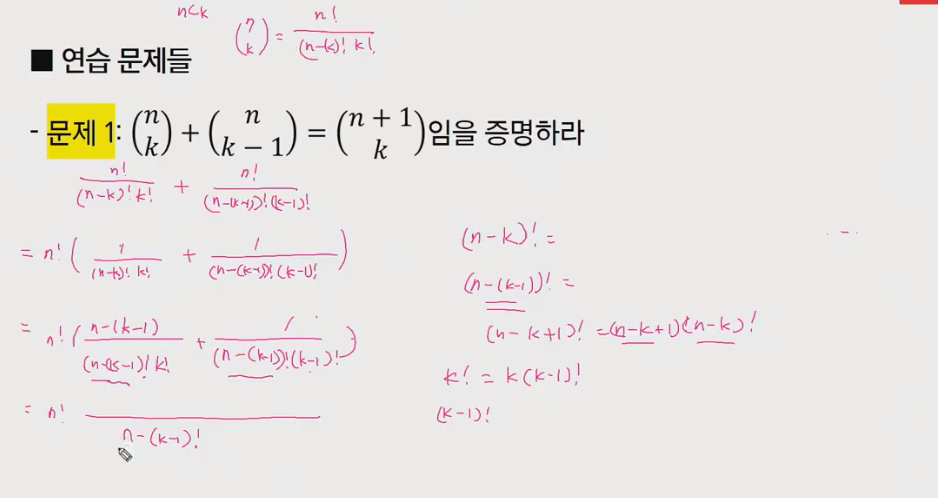 n<k
(n k) = n! / (n-k)! k!
■ 연습 문제들
- 문제 1: (n k) + (n k − 1) = (n + 1 k) 임을 증명하라
n! / (n-k)! k! + n! / (n-(k-1))! (k-1)!
= n! ( 1 / (n-k)! k! + 1 / (n-(k-1))! (k-1)! )
= n! ( n-(k-1) / (n-(k-1)! k! + 1 / (n-(k-1))! (k-1)! )
= n! / n-(k-1)!
(n-k)! =
(n-(k-1))! =
(n-k+1)! = (n-k+1)(n-k)!
k! = k(k-1)!
(k-1)!